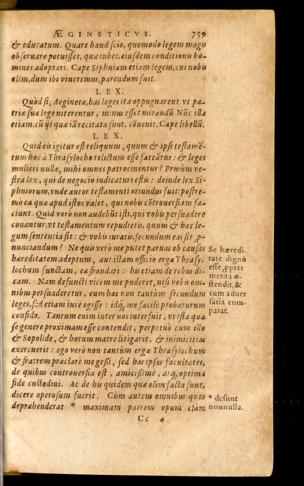 ÆGINETICVS. 759
& educatum. Quare haud scio, quomodo legem magis
obseruare potuisset, quæ iubet, eiusdem conditionis ho-
mines adoptari. Cape Siphniam etiam legem, cui nobis
olim, dum ibi viueremus, parendum fuit.
LEX.
Quòd si, Aeginetæ, hai leges ita oppugnarent vt pa-
triæ suæ legem terentur, minus esset mirandū. Nūc illa
etiam, cū ijs quæ iā recitata sunt, cōuenit. Cape libellū.
LEX.
Quid eis igitur est reliquum, quum & ipsi testamē-
tum hos à Thrasylocho relictum esse fateātur: & leges
mulieri nulla, mihi omnes patrocinentur? Primùm ve-
stra lex, qui de negocio iudicaturi estis: deinde lex Si-
phniorum, vnde autor testamenti oriundus fuit: postre-
mò ea quæ apud istos valet, qui nobis cōtrouersiam fa-
ciunt. Quid verò non audebūt isti, qui vobis persuadere
conantur, vt testamentum repudietis, quum & hæc le-
gum sententia sit: & vobis iuratis, secundum eas sit p-
nunciandum? Ne quis verò me putet paruas ob causas
hæreditatem adeptum, aut istam officio erga Thrasy-
lochum functam, ea fraudari: hæc etiam de rebus di-
cam. Nam defuncti vicem me puderet, nisi vobis om-
nibus persuaderetur, eum hæc non tantùm secundum
leges, sed etiam iure egisse: idq́; me facilè probaturum
confido. Tantum enim inter nos interfuit, vt ista quæ
se genere proximam esse contendit, perpetuò cum illo
& Sopolide, & horum matre litigarit, & inimicitias
exercuerit: ego verò non tantùm erga Thrasylochum
& fratrem præclarè me gessi, sed has ipsas facultates,
de quibus controuersia est, amicissimè, atq; optima
fide custodiui. Ac de his quidem quæ olim facta sunt,
dicere operosum fuerit. Cùm autem omnibus quos
deprehenderat * maximam partem opum clàm
Cc 4
Se hæredi-
tate dignū
esse, ppter
merita o-
stendit, &
cum aduer
saria com-
parat.
* desunt
nonnulla.